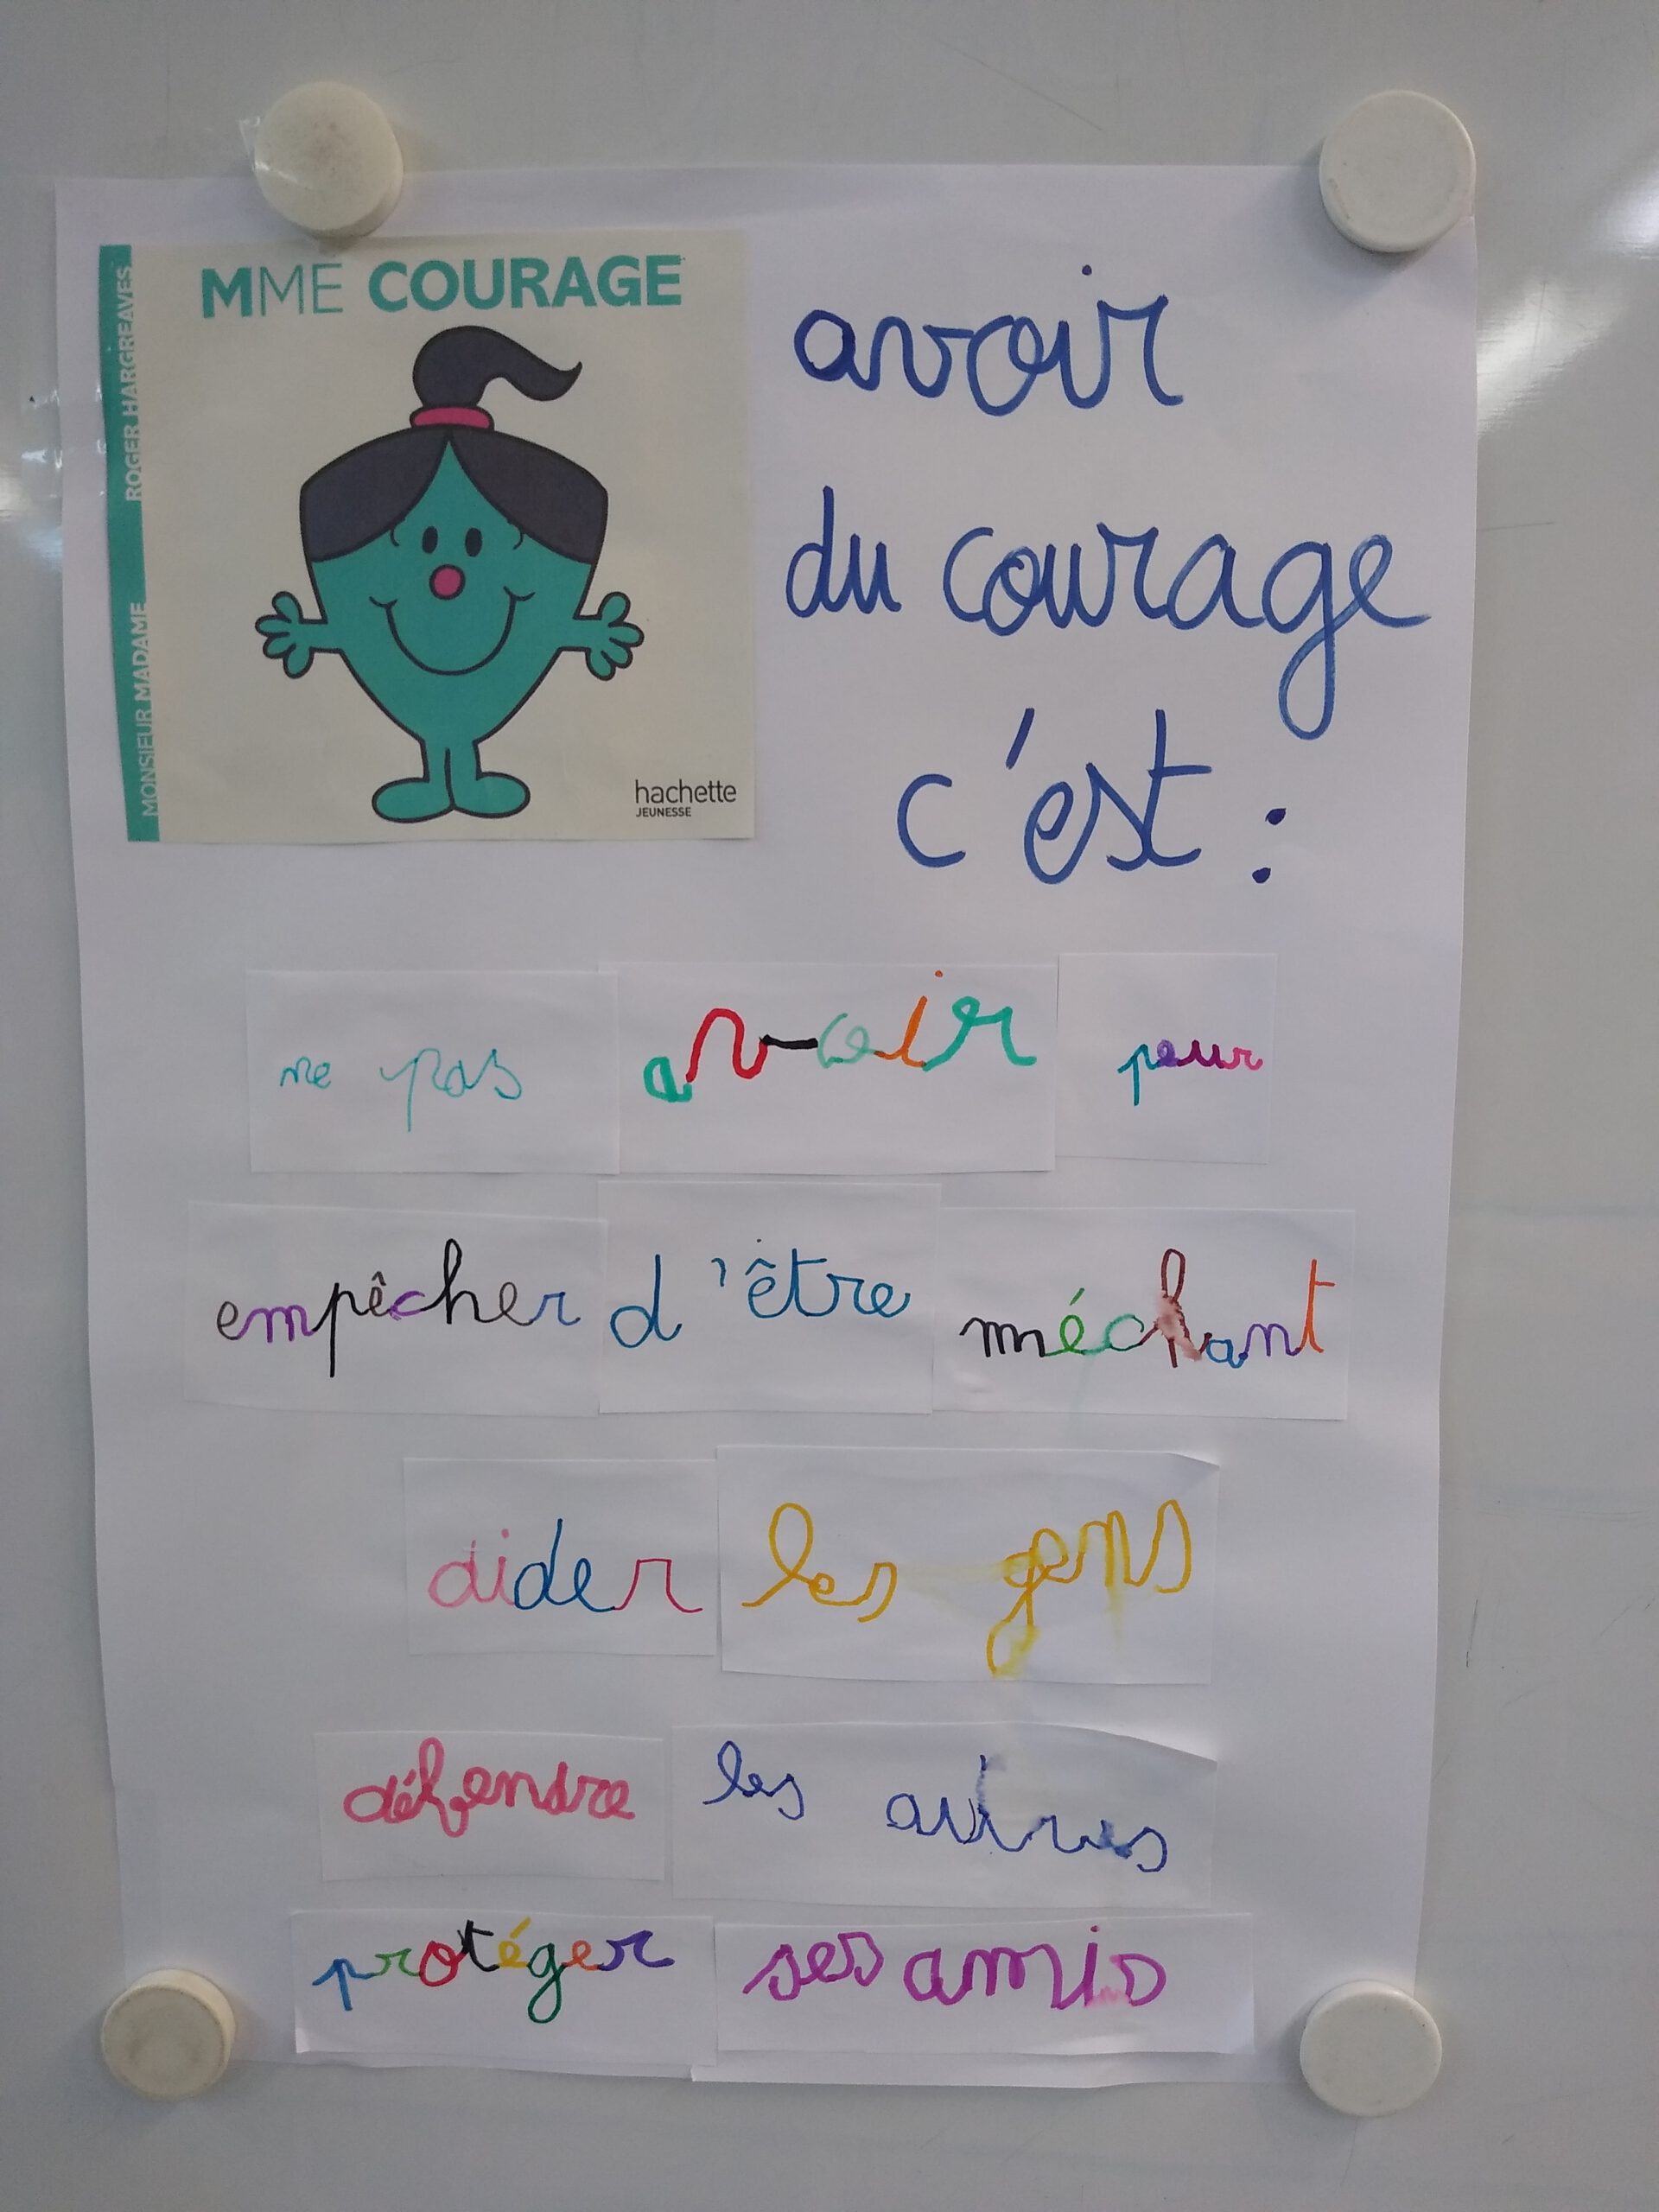 MME COURAGE
ROGER HARGREAVES
MONSIEUR MADAME
hachette
JEUNESSE
avoir
du courage
c'est :
ne pas avoir peur
empêcher d'être méchant
aider les gens
défendre les autres
protéger ses amis